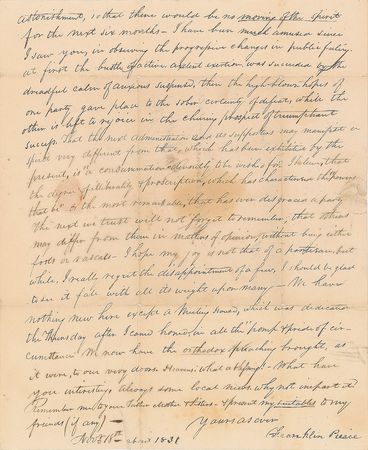 Astonishment, so that there would be no moving of the spirit
for the next six months – I have been much amused since
I saw you, in observing the progressive changes in public feeling.
at first the bustle of active ardent exertion, was succeeded by the
dreadful calm of anxious suspense, then the high blown hopes of
one party gave place to the sober certainty of defeat, while the
other is left to rejoice in the cheering prospect of triumphant
success. That the next Administration and its supporters may manifest a
spirit very different from that, which has been exhibited by the
present, is a consummation devoutly to be wished for. I believe, that
the degree of illiberality & proscription, which has characterised the "Powers
that be" is the most remarkable, that has ever disgraced a party
The next we trust will not forget to remember, that others
may differ from them in matters of opinion, without being either
fools or rascals – I hope my joy is not that of a partisan, but
while I really regret the disappointment of a few, I should be glad
to see it fall with all its weight upon many – We have
nothing new here except a Meeting House, which was dedicated
the Thursday after I came home, in all the "pomp & pride of cir-
cumstance We now have the orthodox preaching brought, as
it were, to our very doors Heavens! what a blessing! – What have
you interesting. Always some local news, why not impart it
Remember me to your Father Mother & Sisters – & present my suitables to my
friends (if any) –
Yours as ever
Franklin Pierce
Nov. 18th 1828